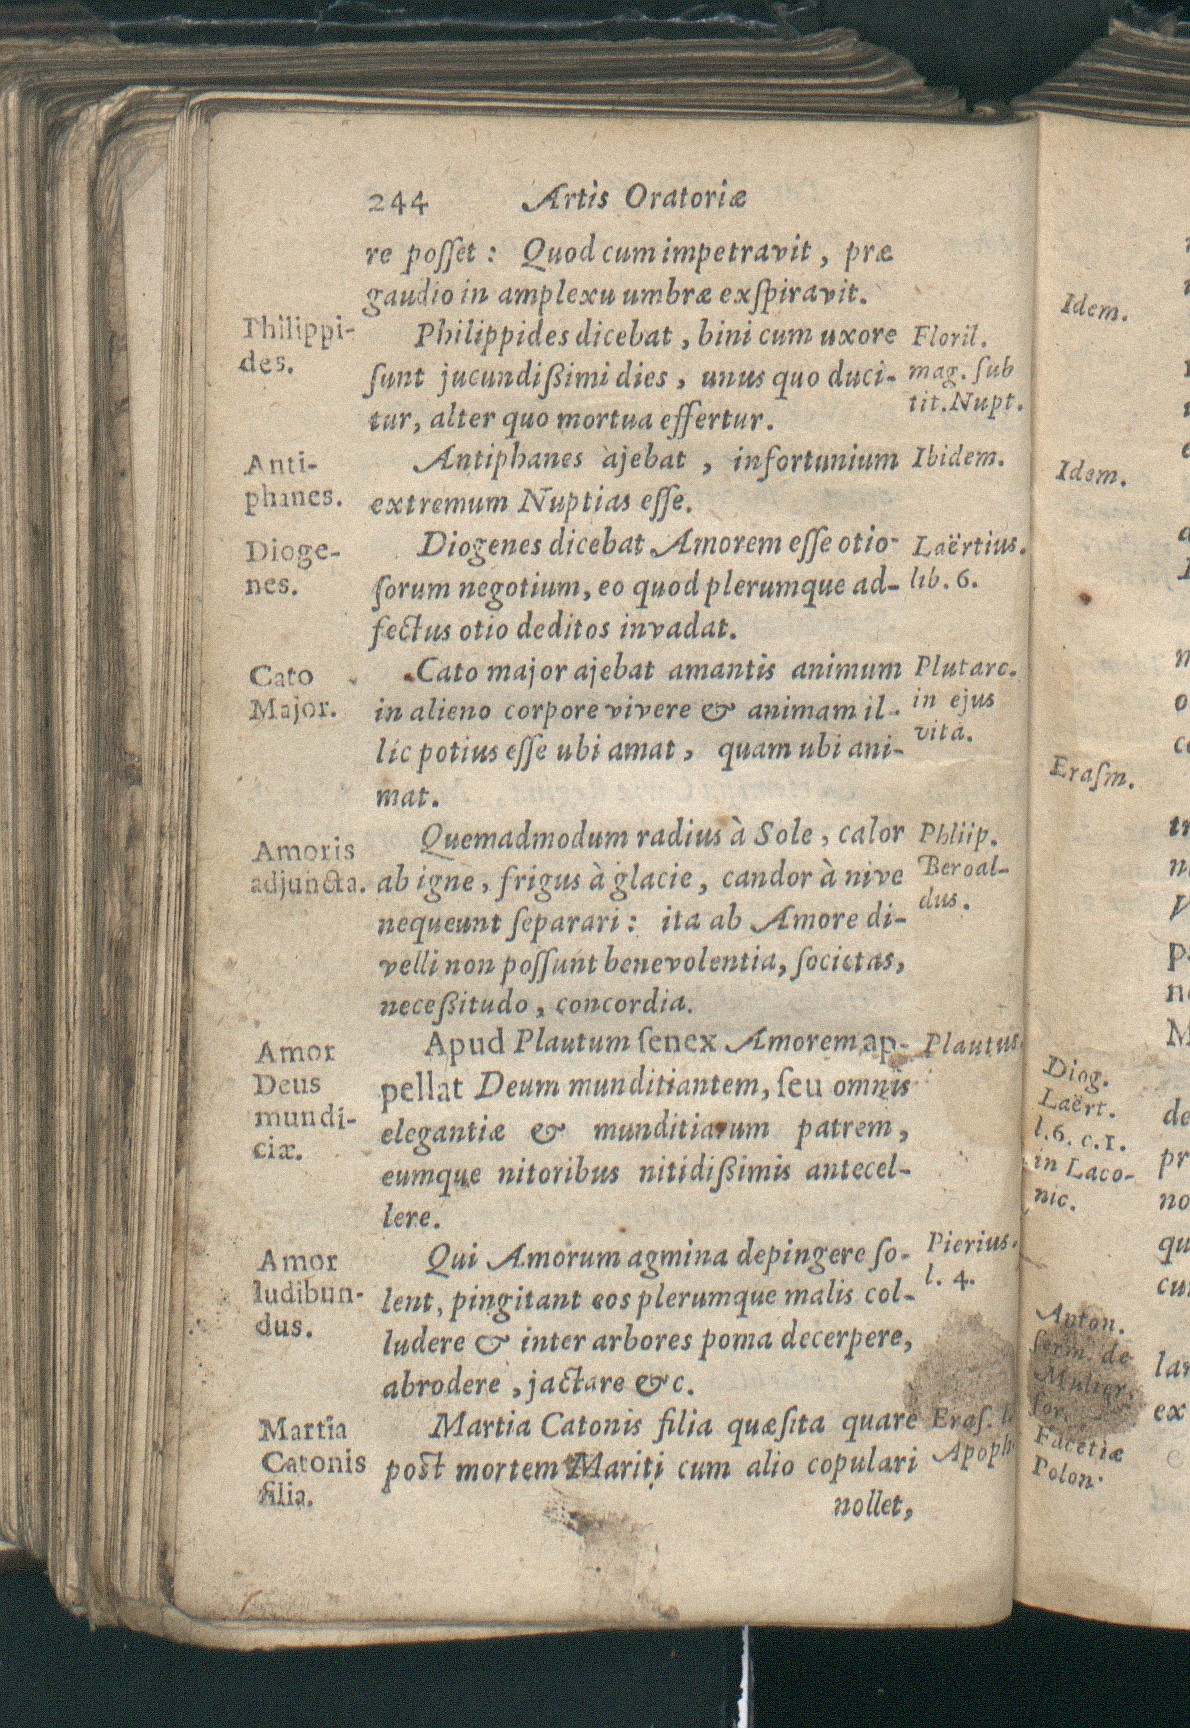 244 Artis Oratoriæ
re poſſet : Quod cum impetravit , præ
gaudio in amplexu umbræ exſpiravit.
Philippi-
des.
Philippides dicebat , bini cum uxore
ſunt jucundißimi dies , unus quo duci-
tur, alter quo mortua effertur.
Floril.
mag. ſub
tit. Nupt.
Anti-
phanes.
Antiphanes ajebat , infortunium
extremum Nuptias eſſe.
Ibidem.
Dioge-
nes.
Diogenes dicebat Amorem eſſe otio-
ſorum negotium, eo quod plerumque ad-
fectus otio deditos invadat.
Laërtius.
lib. 6.
Cato
Major.
Cato major ajebat amantis animum
in alieno corpore vivere & animam il-
lic potius eſſe ubi amat , quam ubi ani-
mat.
Plutarc.
in ejus
vitâ.
Amoris
adjuncta.
Quemadmodum radius à Sole , calor
ab igne , frigus à glacie , candor à nive
nequeunt ſeparari : ita ab Amore di-
velli non poſſunt benevolentia, ſocietas,
neceßitudo , concordia.
Phliip.
Beroal-
dus.
Amor
Deus
mundi-
ciæ.
Apud Plautum ſenex Amorem ap-
pellat Deum munditiantem, ſeu omnis
elegantiæ & munditiarum patrem,
eumque nitoribus nitidißimis antecel-
lere.
Plautus.
Amor
ludibun-
dus.
Qui Amorum agmina depingere ſo-
lent, pingitant eos plerumque malis col-
ludere & inter arbores poma decerpere,
abrodere , jactare &c.
Pierius.
l. 4.
Martia
Catonis
filia.
Martia Catonis filia quæſita quare
post mortem Mariti cum alio copulari
nollet,
Eraſ. l.
Apoph
Idem.
Idem.
Eraſm.
Diog.
Laërt.
l. 6. c. 1.
in Laco-
nic.
Anton.
ſerm. de
Mulier.
for.
Facetiæ
Polon.